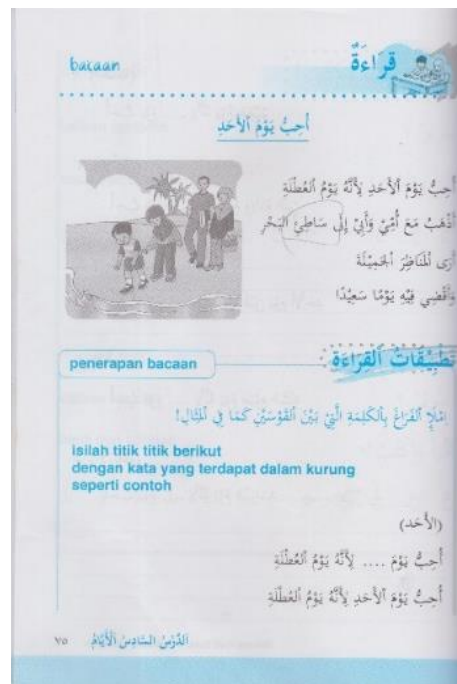 bacaan
قِرَاءَةٌ
أُحِبُّ يَوْمَ ٱلأَحَدِ
أُحِبُّ يَوْمَ ٱلأَحَدِ لِأَنَّهُ يَوْمُ ٱلعُطْلَةِ
أَذْهَبُ مَعَ أُمِّيْ وَأَبِيْ إِلَى سَاطِئِ البَحْرِ
أَرَى لْمَنَاظِرَ الجَمِيْلَةَ
وَأَقْضِي فِيْهِ يَوْمًا سَعِيْدًا
penerapan bacaan
تَطْبِيْقَاتُ ٱلقِرَاءَةِ
اِمْلَإِ ٱلفَرَاغَ بِٱلكَلِمَةِ الَّتِيْ بَيْنَ ٱلقَوْسَيْنِ كَمَا فِي لْمِثَالِ!
Isilah titik titik berikut
dengan kata yang terdapat dalam kurung
seperti contoh
(الأَحَد)
أُحِبُّ يَوْمَ .... لِأَنَّهُ يَوْمُ ٱلعُطْلَةِ
أُحِبُّ يَوْمَ ٱلأَحَدِ لِأَنَّهُ يَوْمُ ٱلعُطْلَةِ
ٱلدَّرْسُ السَّادِسُ الأَيَّامُ ٧٥